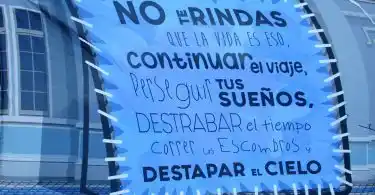 NO TE RINDAS
QUE LA VIDA ES ESO,
continuar el viaje,
Perseguir TUS
SUEÑOS,
DESTRABAR el tiempo
correr los Escombros y
DESTAPAR EL CIELO